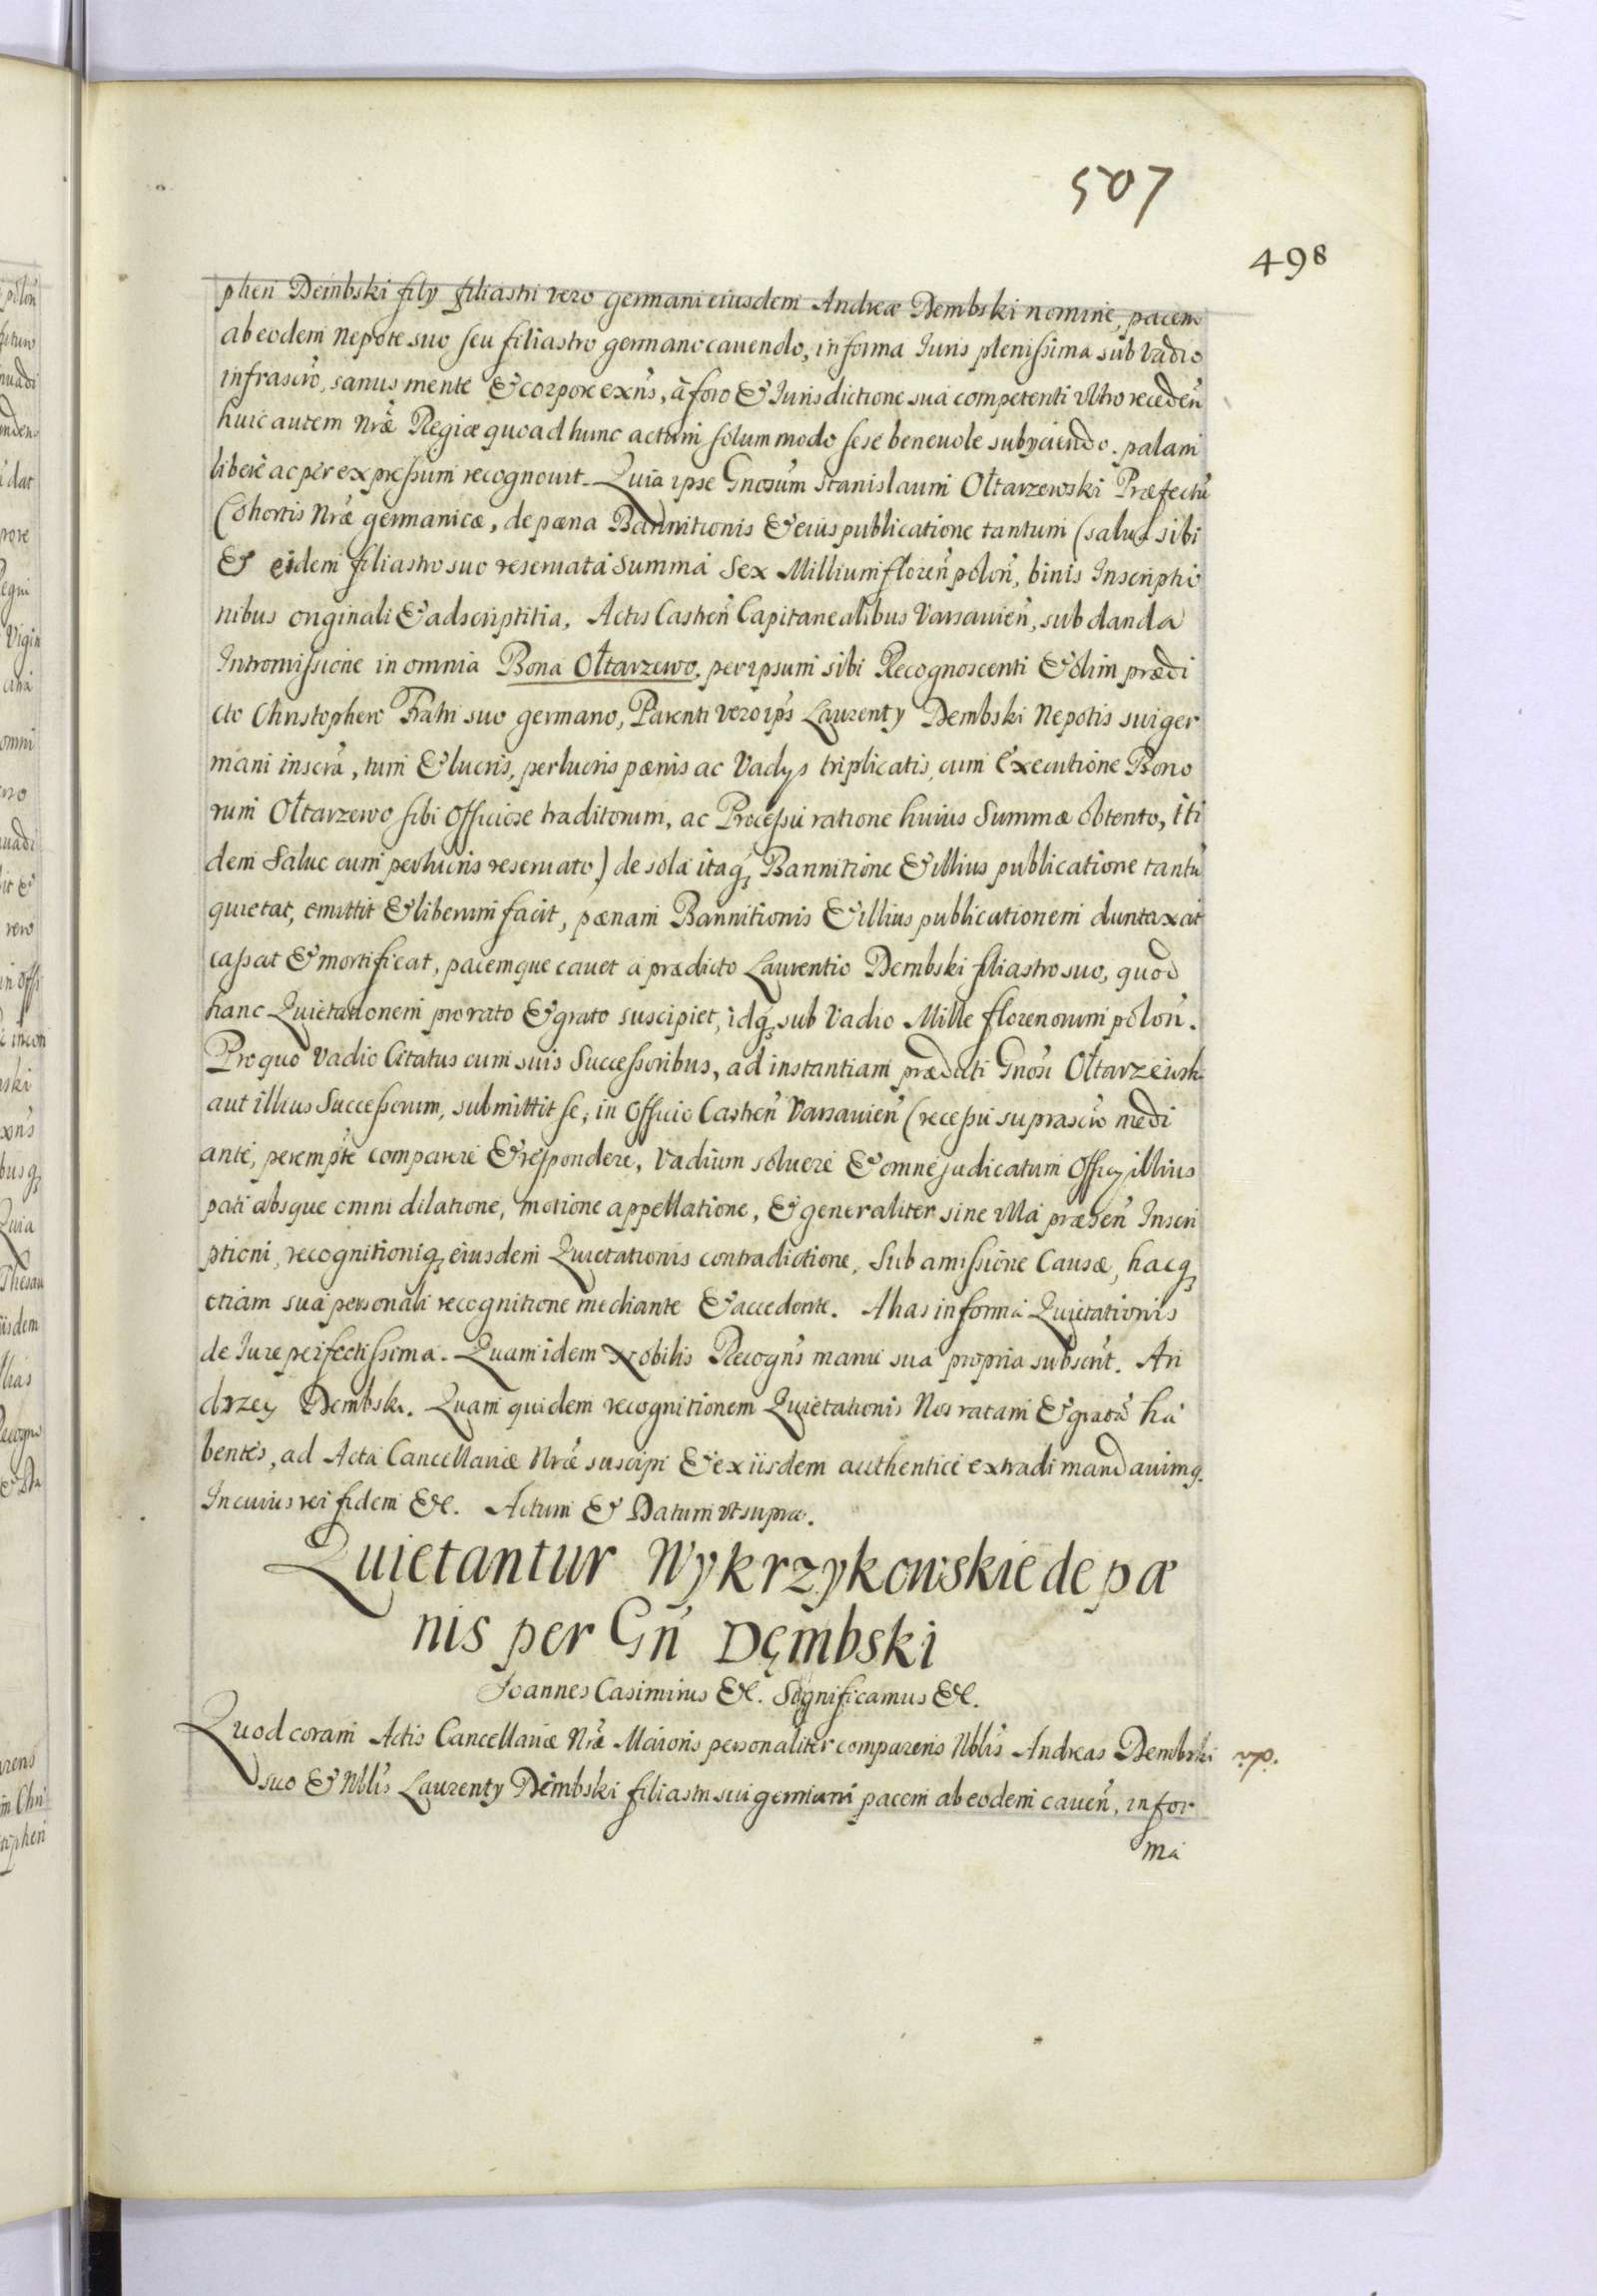 507
498
phen Dembski fily filiastri vero germani eiusdem Andreæ Dembski nomine, pacem
ab eodem Nepote suo seu filiastro germano cauendo, in forma Iuris plenissima sub Vadio
infrascr̃o, sanus mente & corpore exñs, à foro & Iurisdictione sua competenti vltro recedeñ
huic autem Nr̃æ Regiæ quoad hunc actum solummodo sese beneuole subyciendo. palam
liberè ac per expressum recognouit. Quia ipse Gnosum Stanislaum Ołtarzewski Præfectũ
Cohortis Nr̃æ germanicæ, de pæna Bannitionis & eius publicatione tantum (salua sibi
& eidem filiastro suo reseruata Summa Sex Millium floreñ poloñ, binis Inscriptio
nibus originali & adscriptitia, Actis Castreñ Capitanealibus Varsauieñ, sub danda
Intromissione in omnia Bona Ołtarzewo, per ipsum sibi Recognoscenti & olim prædi
cto Christophero Fratri suo germano, Parenti vero ip̃s Laurenty Dembski Nepotis sui ger
mani inscr̃a, tum & lucris, perlucris pænis ac Vadys triplicatis, cum Executione Bono
rum Ołtarzewo sibi officiose traditorum, ac Processu ratione huius Summæ obtento, iti
dem Saluo cum perlucris reseruato) de sola itaq̃ Bannitione & illius publicatione tantũ
quietat, emittit & liberum facit, pænam Bannitionis & illius publicationem duntaxat
cassat & mortificat, pacemque cauet a prædicto Laurentio Dembski filiastro suo, quod
hanc Quietationem pro rato & grato suscipiet, idq̃ sub Vadio Mille florenorum poloñ.
Pro quo Vadio Citatus cum suis Successoribus, ad instantiam prædicti Gnosi Ołtarzewsk
aut illius Successorum, submittit se, in Officio Castreñ Varsauieñ (recessu suprascr̃o medi
ante, perempt̃e comparere & respondere, Vadium soluere & omne judicatum Officy illius
pati absque omni dilatione, motione appellatione, & generaliter sine vlla præseñ Inscri
ptioni, recognitioniq̃ eiusdem Quietationis contradictione, Sub amissione Causæ, hacq̃
etiam sua personali recognitione mediante & accedente. Alias in forma Quietationis
de Iure perfectissima. Quam idem Nobilis Recogñs manu sua propria subscr̃t. An
drzey Dembski. Quam quidem recognitionem Quietationis Nos ratam & gratã ha
bentes, ad Acta Cancellariæ Nr̃æ suscipi & ex iisdem authenticè extradi mandauimq.
In cuius rei fidem &c. Actum & Datum vt supra.
Quietantur Wykrzykowskie de pæ
nis per Gñ Dęmbski
Joannes Casimirus &c. Significamus &c.
Quod coram Actis Cancellariæ Nr̃æ Maioris personaliter comparens Nblis Andreas Dembski
suo & Nblis Laurenty Dembski filiastri sui germani pacem ab eodem caueñ, in for
ma